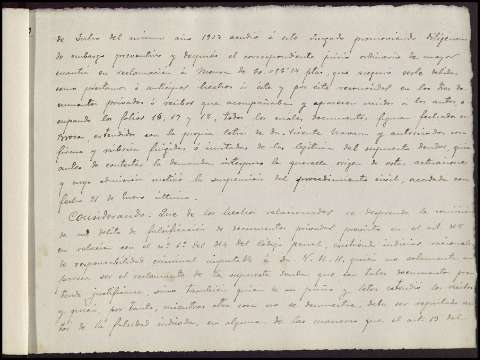 de Julio del mismo año 1907 acudió á este Juzgado promoviendo diligencias
de embargo preventivo y después el correspondiente juicio ordinario de mayor
cuantía en reclamación á Navarro de 20.195'14 ptas, que asegura serle debidas
como préstamo ó anticipo hechos á este y por éste reconocidos en los dos do-
cumentos privados ó recibos que acompañaban y aparecen unidos á los autos, o-
cupando los folios 16, 17 y 18, todos los cuales documentos, figuran fechados en
extendidos con la propia letra de Dn. Vicente Navarro y autorizados con
firma y rúbrica fingidas ó imitadas de las legítimas del supuesto deudor, quien
antes de contestar la demanda, interpuso la querella origen de estas actuaciones
y cuya admisión motivó la suspensión del procedimiento civil, acordada con
fecha 21 de Enero último.
Considerando: Que de los hechos relacionados se desprende la comisión
de un delito de falsificación de documentos privados previsto en el art 318
en relación con el nº 1º del 314 del Código penal, existiendo indicios racionales
de responsabilidad criminal imputable á Dn. V. N. N. quien no solamente a-
parece ser el reclamante de la supuesta deuda que con tales documentos pre-
tende justificar, sino también quien de su puño y letra extendió los recibos
y quien, por tanto, mientras otra cosa no se demuestre, debe ser reputado au-
tor de la falsedad indicada, en alguna de las maneras que el art. 13 del